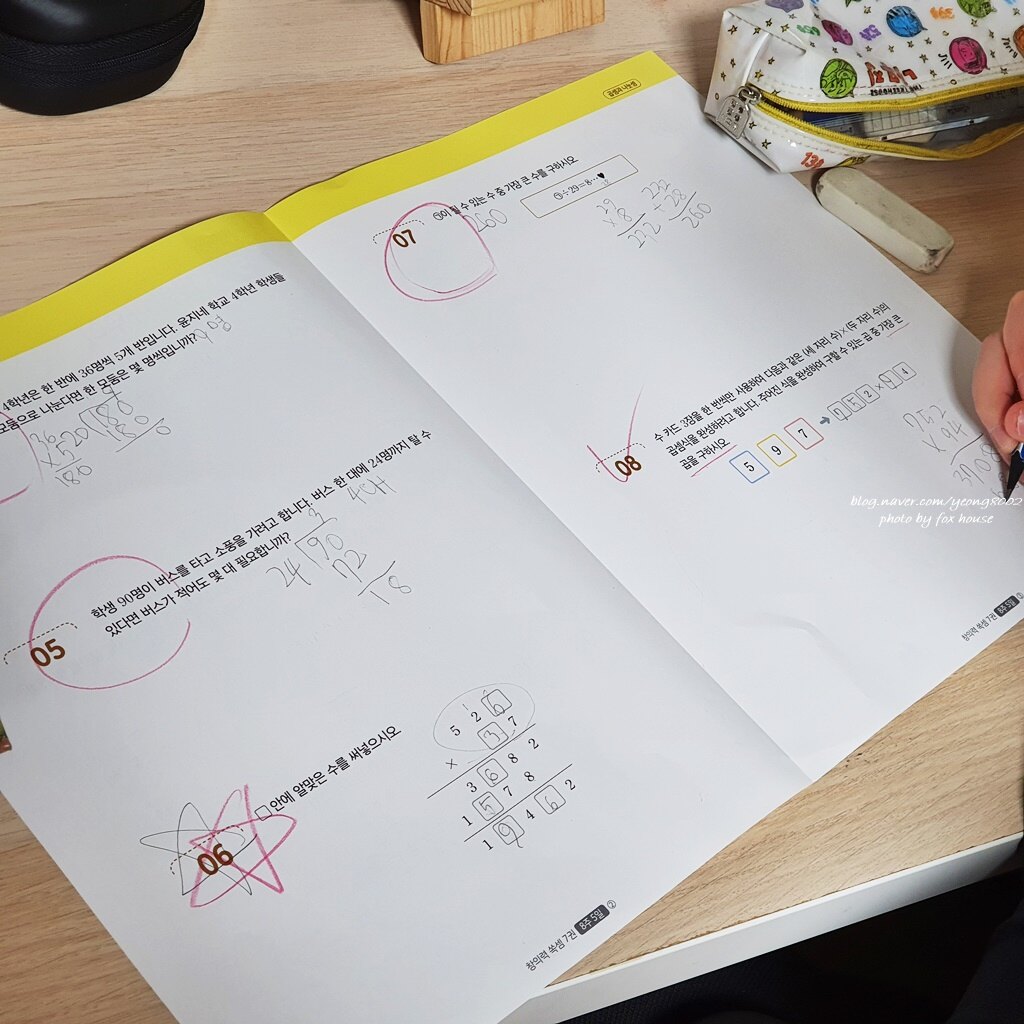 4학년은 한 반에 36명씩 5개 반입니다. 윤지네 학교 4학년 학생들
모둠으로 나눈다면 한 모둠은 몇 명씩입니까?
36
×5
180
20
180
180
0
05
학생 90명이 버스를 타고 소풍을 가려고 합니다. 버스 한 대에 24명까지 탈 수
있다면 버스가 적어도 몇 대 필요합니까?
4대
3
24 90
72
18
06
□ 안에 알맞은 수를 써넣으시오
5 2 6
× 3 7
3 6 8 2
1 5 7 8
1 9 4 6 2
창의력 쑥셈 7권 8주 5일 ②
곱셈과 나눗셈
07
㉠이 될 수 있는 수 중 가장 큰 수를 구하시오
260
㉠÷29=8…♥
29
×8
232
232
+28
260
08
수 카드 3장을 한 번씩만 사용하여 다음과 같은 (세 자리 수)×(두 자리 수)의
곱셈식을 완성하려고 합니다. 주어진 식을 완성하여 구할 수 있는 곱 중 가장 큰
곱을 구하시오
5 9 7 ➡ 7 5 2 × 9 4
752
×94
3008
창의력 쑥셈 7권 8주 5일
blog.naver.com/yeong8002
photo by fox house